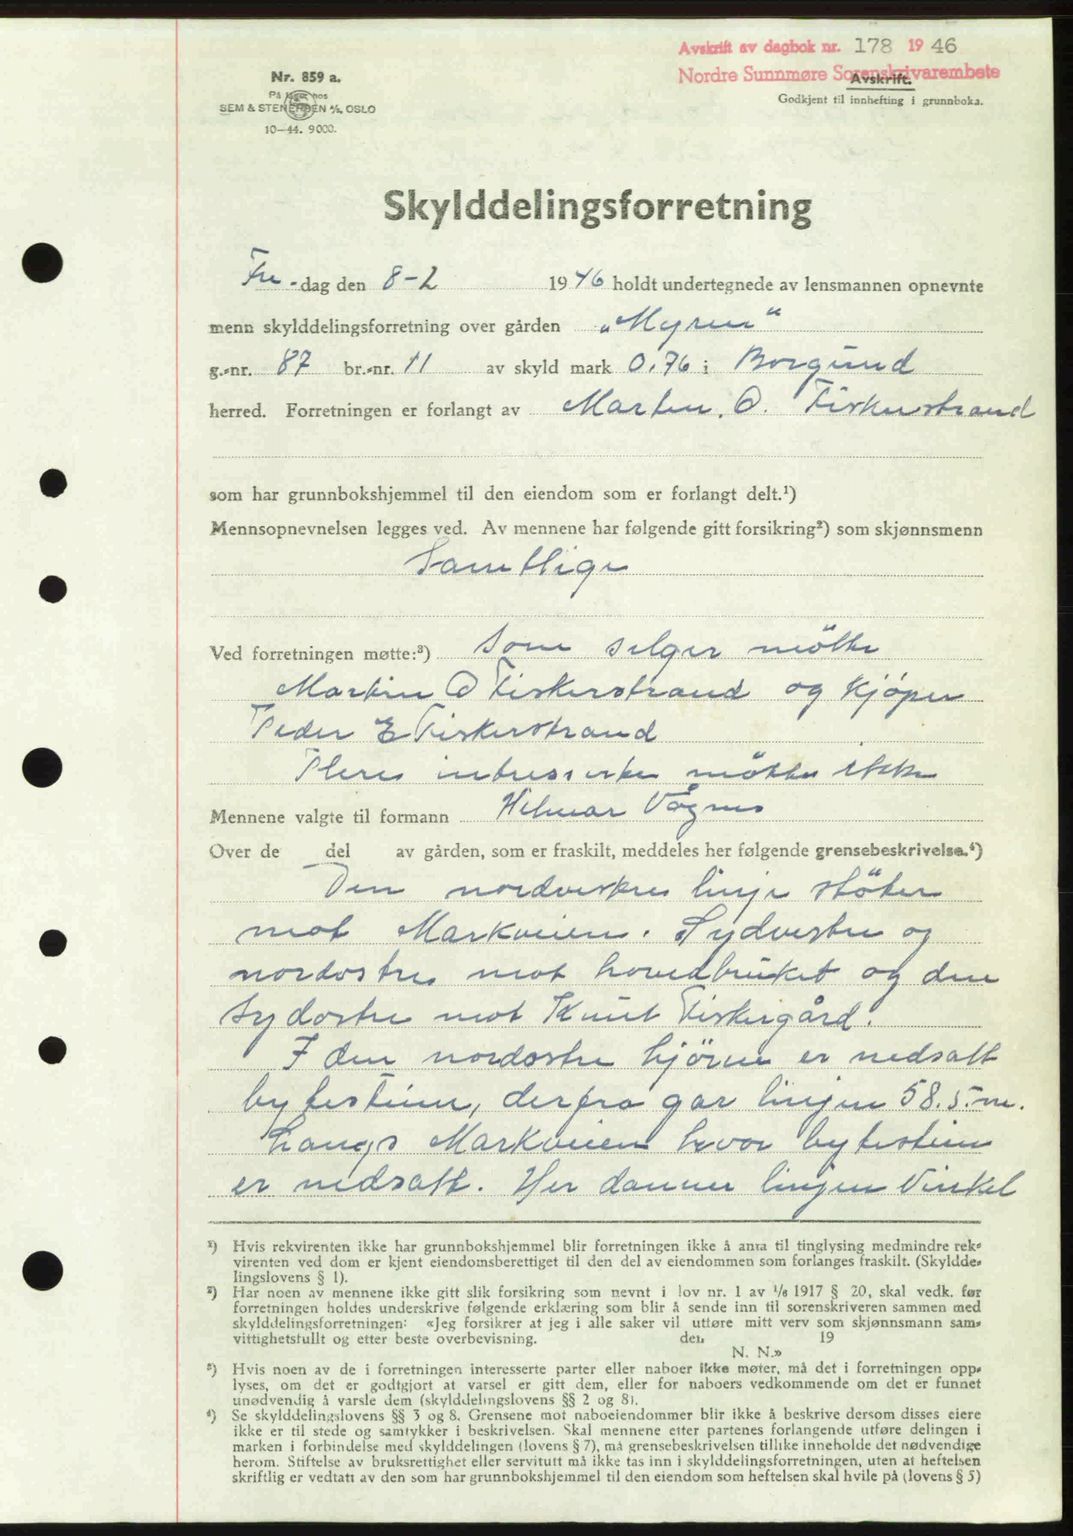 Avskrift av dagbok nr. 178 19 46
Nordre Sunnmøre Sorenskrivarembete
Avskrift.
Godkjent til innhefting i grunnboka.
Nr. 859 a.
På lager hos
SEM & STENERSEN A/S, OSLO
10-44. 9000.
Skylddelingsforretning
Fre-dag den 8-2 1946 holdt undertegnede av lensmannen opnevnte
menn skylddelingsforretning over gården „Myren“
g.-nr. 87 br.-nr. 11 av skyld mark 0,76 i Borgund
herred. Forretningen er forlangt av Marten. O. Fiskerstrand
som har grunnbokshjemmel til den eiendom som er forlangt delt.¹)
Mennsopnevnelsen legges ved. Av mennene har følgende gitt forsikring²) som skjønnsmenn
Samtlige
Ved forretningen møtte:³) Som selger mötte
Martin O Fiskerstrand og kjöper
Peder E Fiskerstrand
Flere intresserte mötte ikke
Mennene valgte til formann Hilmar Vågnes
Over de del av gården, som er fraskilt, meddeles her følgende grensebeskrivelse.⁴)
Den nordvestre linje stöter
mot Markveien. Sydvestre og
nordostre mot hovedbruket og den
sydostre mot Knut Fiskergård.
I den nordostre hjörne er nedsatt
bytestein, derfra gar linjen 58.5 m.
Langs Markveien hvor bytestein
er nedsatt. Her danner linjen Vinkel
¹) Hvis rekvirenten ikke har grunnbokshjemmel blir forretningen ikke å anta til tinglysing medmindre rek-
virenten ved dom er kjent eiendomsberettiget til den del av eiendommen som forlanges fraskilt. (Skyldde-
lingslovens § 1).
²) Har noen av mennene ikke gitt slik forsikring som nevnt i lov nr. 1 av 1/6 1917 § 20, skal vedk. før
forretningen holdes underskrive følgende erklæring som blir å sende inn til sorenskriveren sammen med
skylddelingsforretningen: «Jeg forsikrer at jeg i alle saker vil utføre mitt verv som skjønnsmann sam-
vittighetsfullt og etter beste overbevisning. den 19
N. N.»
³) Hvis noen av de i forretningen interesserte parter eller naboer ikke møter, må det i forretningen opp-
lyses, om det er godtgjort at varsel er gitt dem, eller for naboers vedkommende om det er funnet
unødvendig å varsle dem (skylddelingslovens §§ 2 og 8).
⁴) Se skylddelingslovens §§ 3 og 8. Grensene mot naboeiendommer blir ikke å beskrive dersom disses eiere
ikke er til stede og samtykker i beskrivelsen. Skal mennene etter partenes forlangende utføre delingen i
marken i forbindelse med skylddelingen (lovens § 7), må grensebeskrivelsen tillike inneholde det nødvendige
herom. Stiftelse av bruksrettighet eller servitutt må ikke tas inn i skylddelingsforretningen, uten at heftelsen
skriftlig er vedtatt av den som har grunnbokshjemmel til den eiendom som heftelsen skal hvile på (lovens § 5)